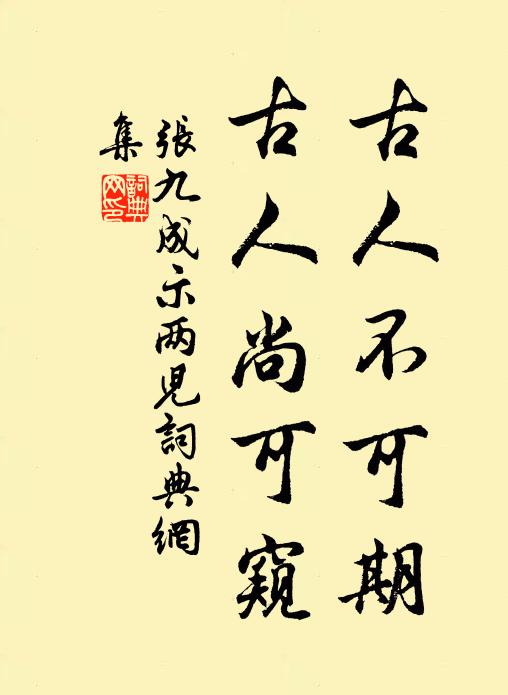 古人不可期
古人尚可窺
張九成示两兒詞典網
集
詞典
网印